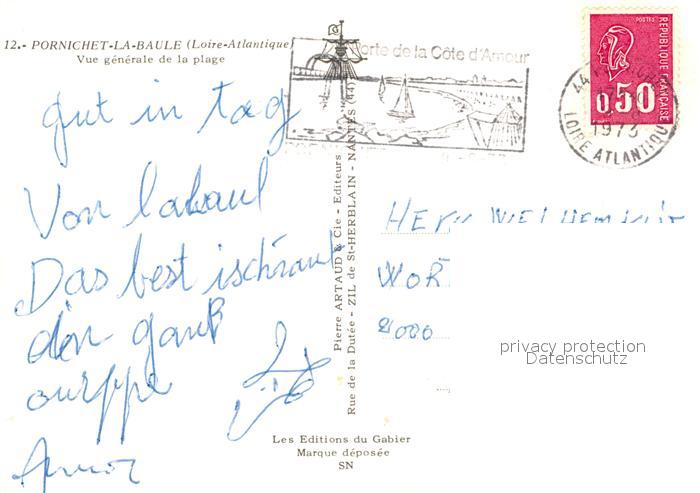 12.- PORNICHET-LA-BAULE (Loire-Atlantique)
Vue générale de la plage
gut in tag
Von labaul
Das best ischtrant
don ganß
ourppe
Amor
Porte de la Côte d'Amour
POSTES
REPUBLIQUE FRANÇAISE
0,50
44
1973
LOIRE ATLANTIQUE
Pierre ARTAUD & Cie - Editeurs
Rue de la Dutée - ZIL de St-HERBLAIN - NANTES (44)
HERN
WOR
8000
privacy protection
Datenschutz
Les Editions du Gabier
Marque déposée
SN